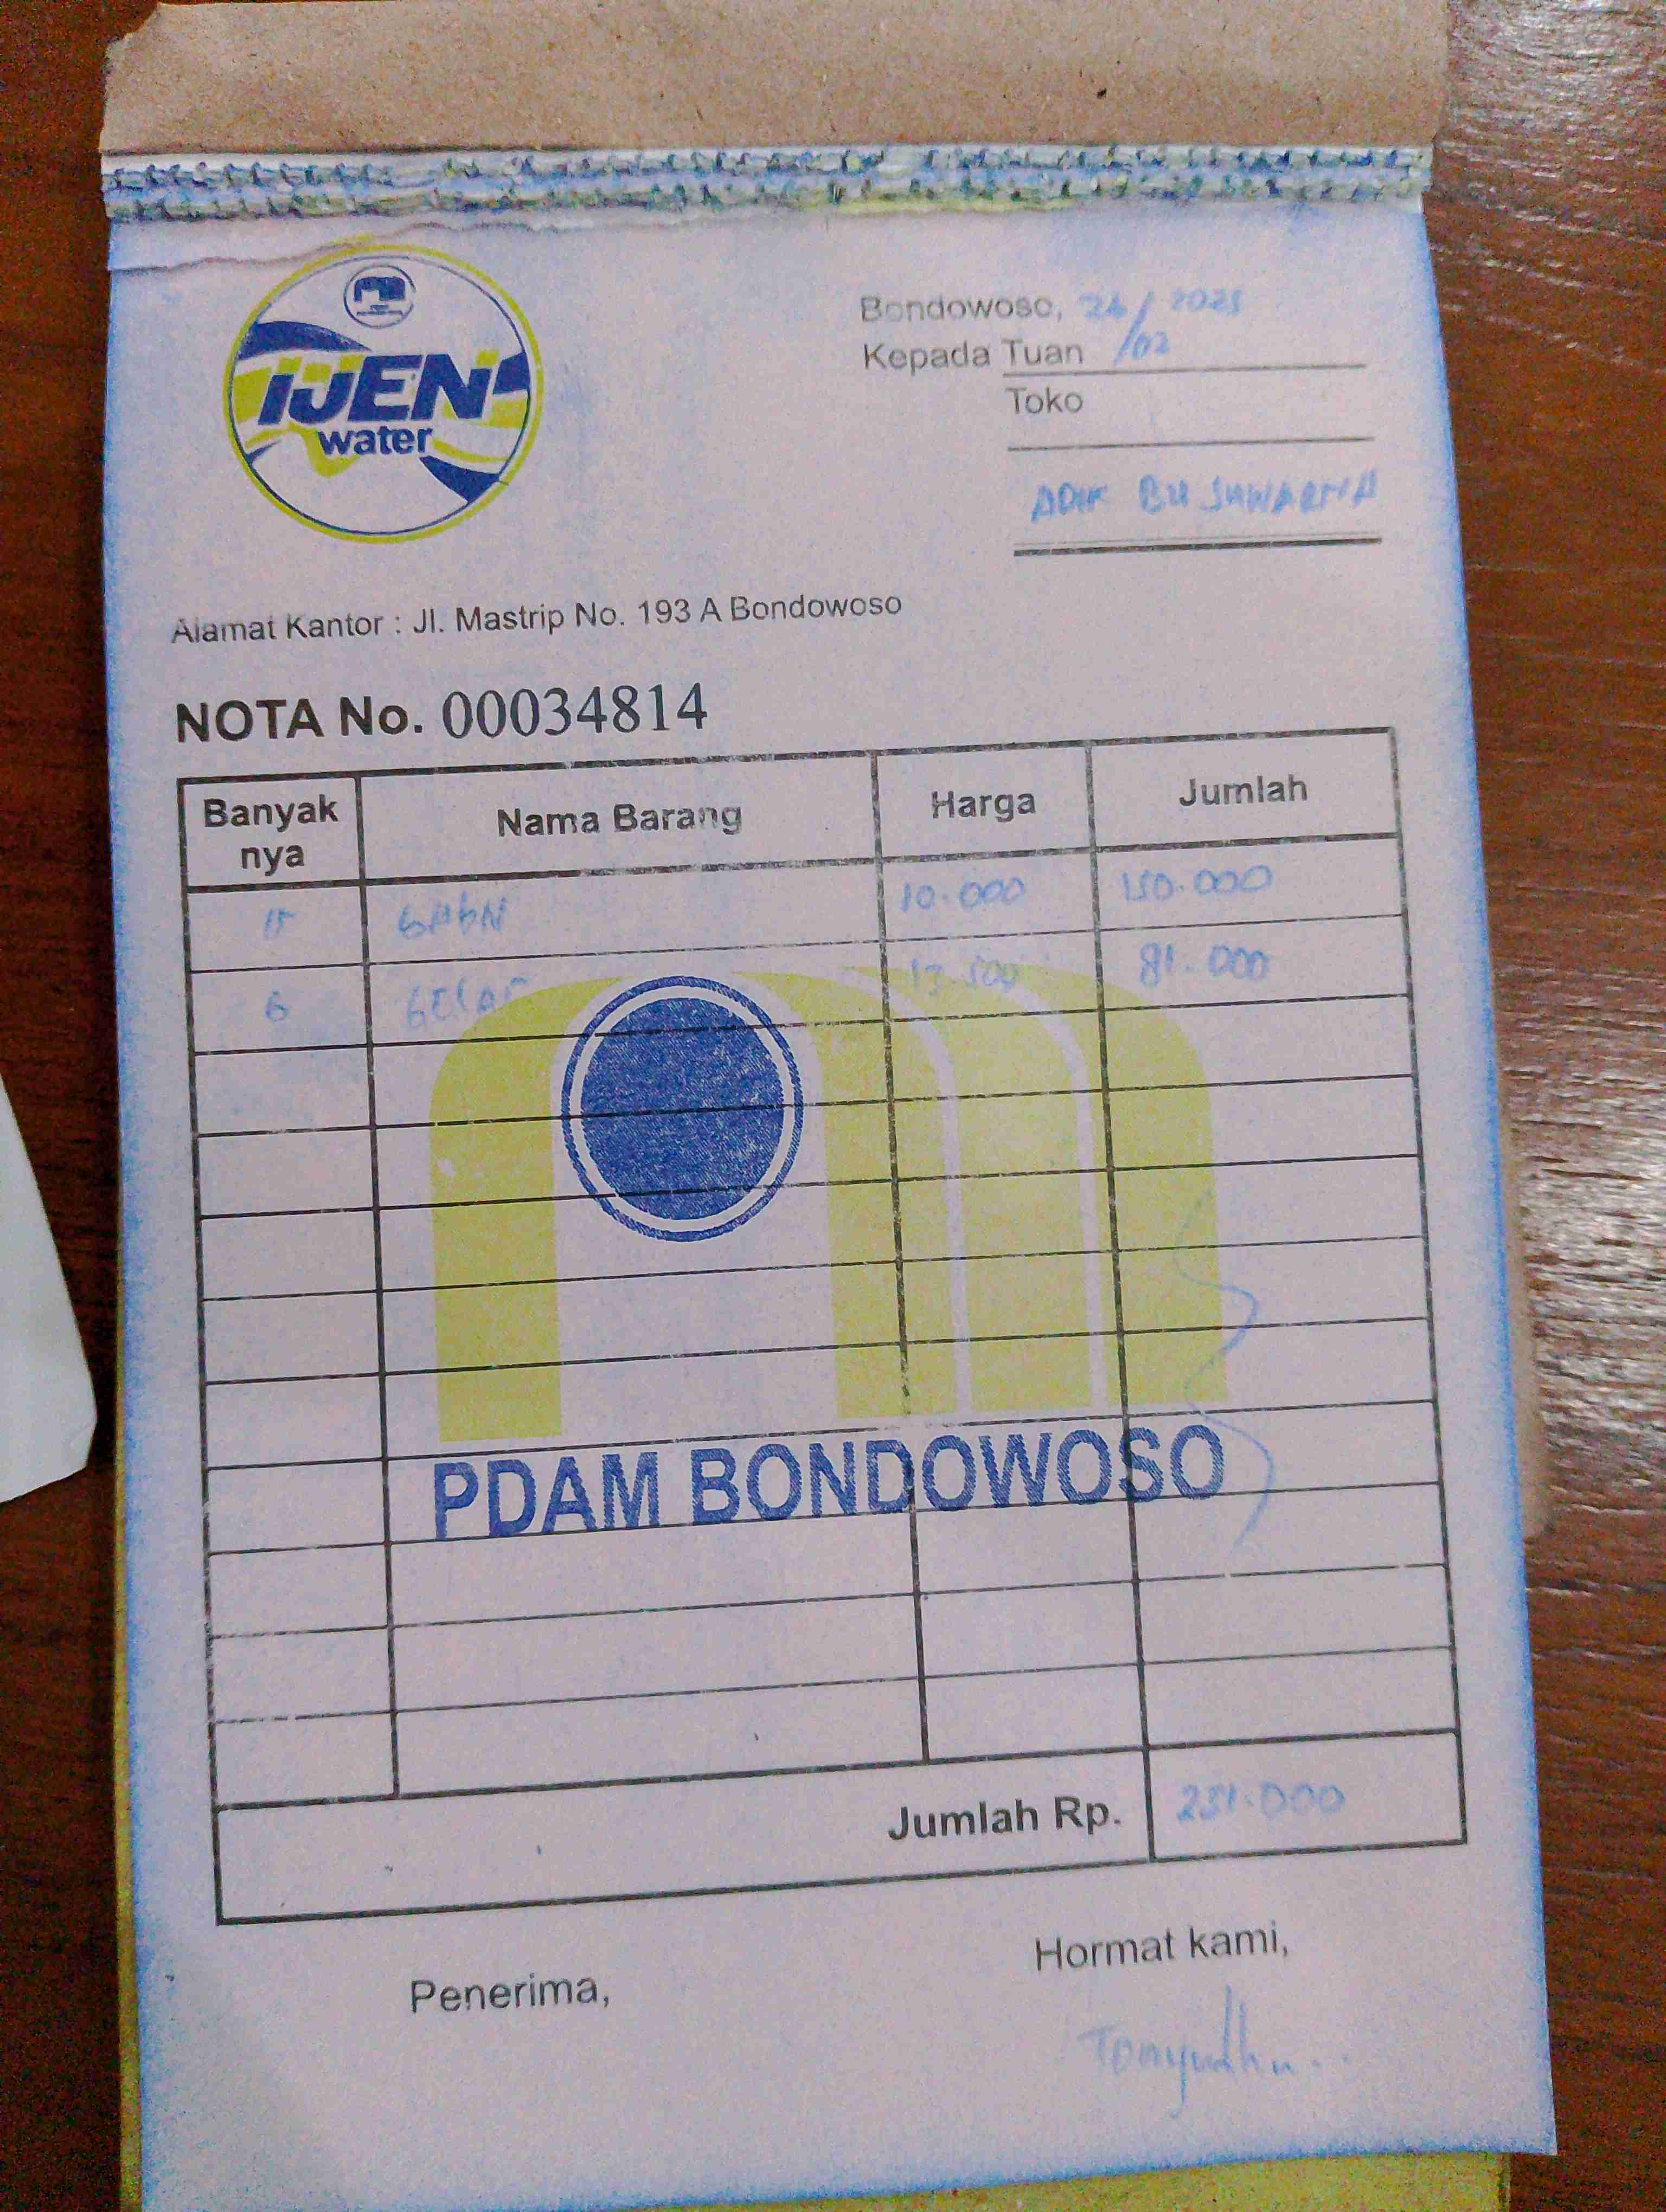 IJEN
water
Bondowoso, 24/02 2025
Kepada Tuan
Toko
ADIK BU SUWARNA
Alamat Kantor : Jl. Mastrip No. 193 A Bondowoso
NOTA No. 00034814
Banyak nya Nama Barang Harga Jumlah
15 GABN 10.000 150.000
6 GELAS 13.500 81.000
PDAM BONDOWOSO
Jumlah Rp. 231.000
Penerima,
Hormat kami,